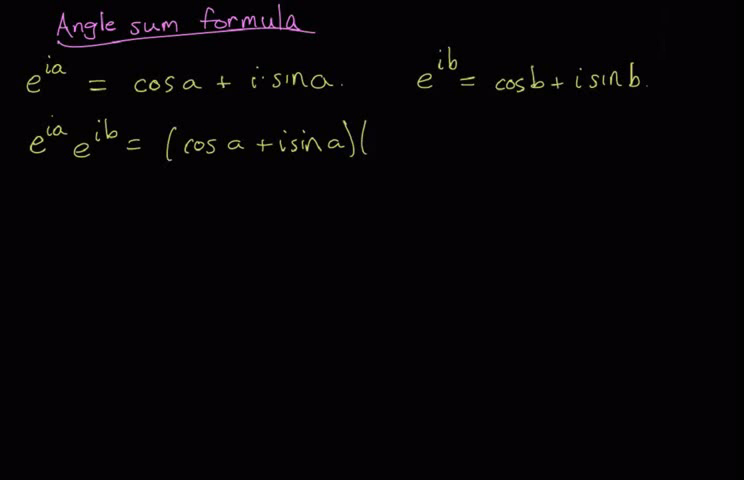 Angle sum formula
e^{ia} = cos a + i·sin a.    e^{ib} = cos b + i sin b.
e^{ia} e^{ib} = (cos a + i sin a)(